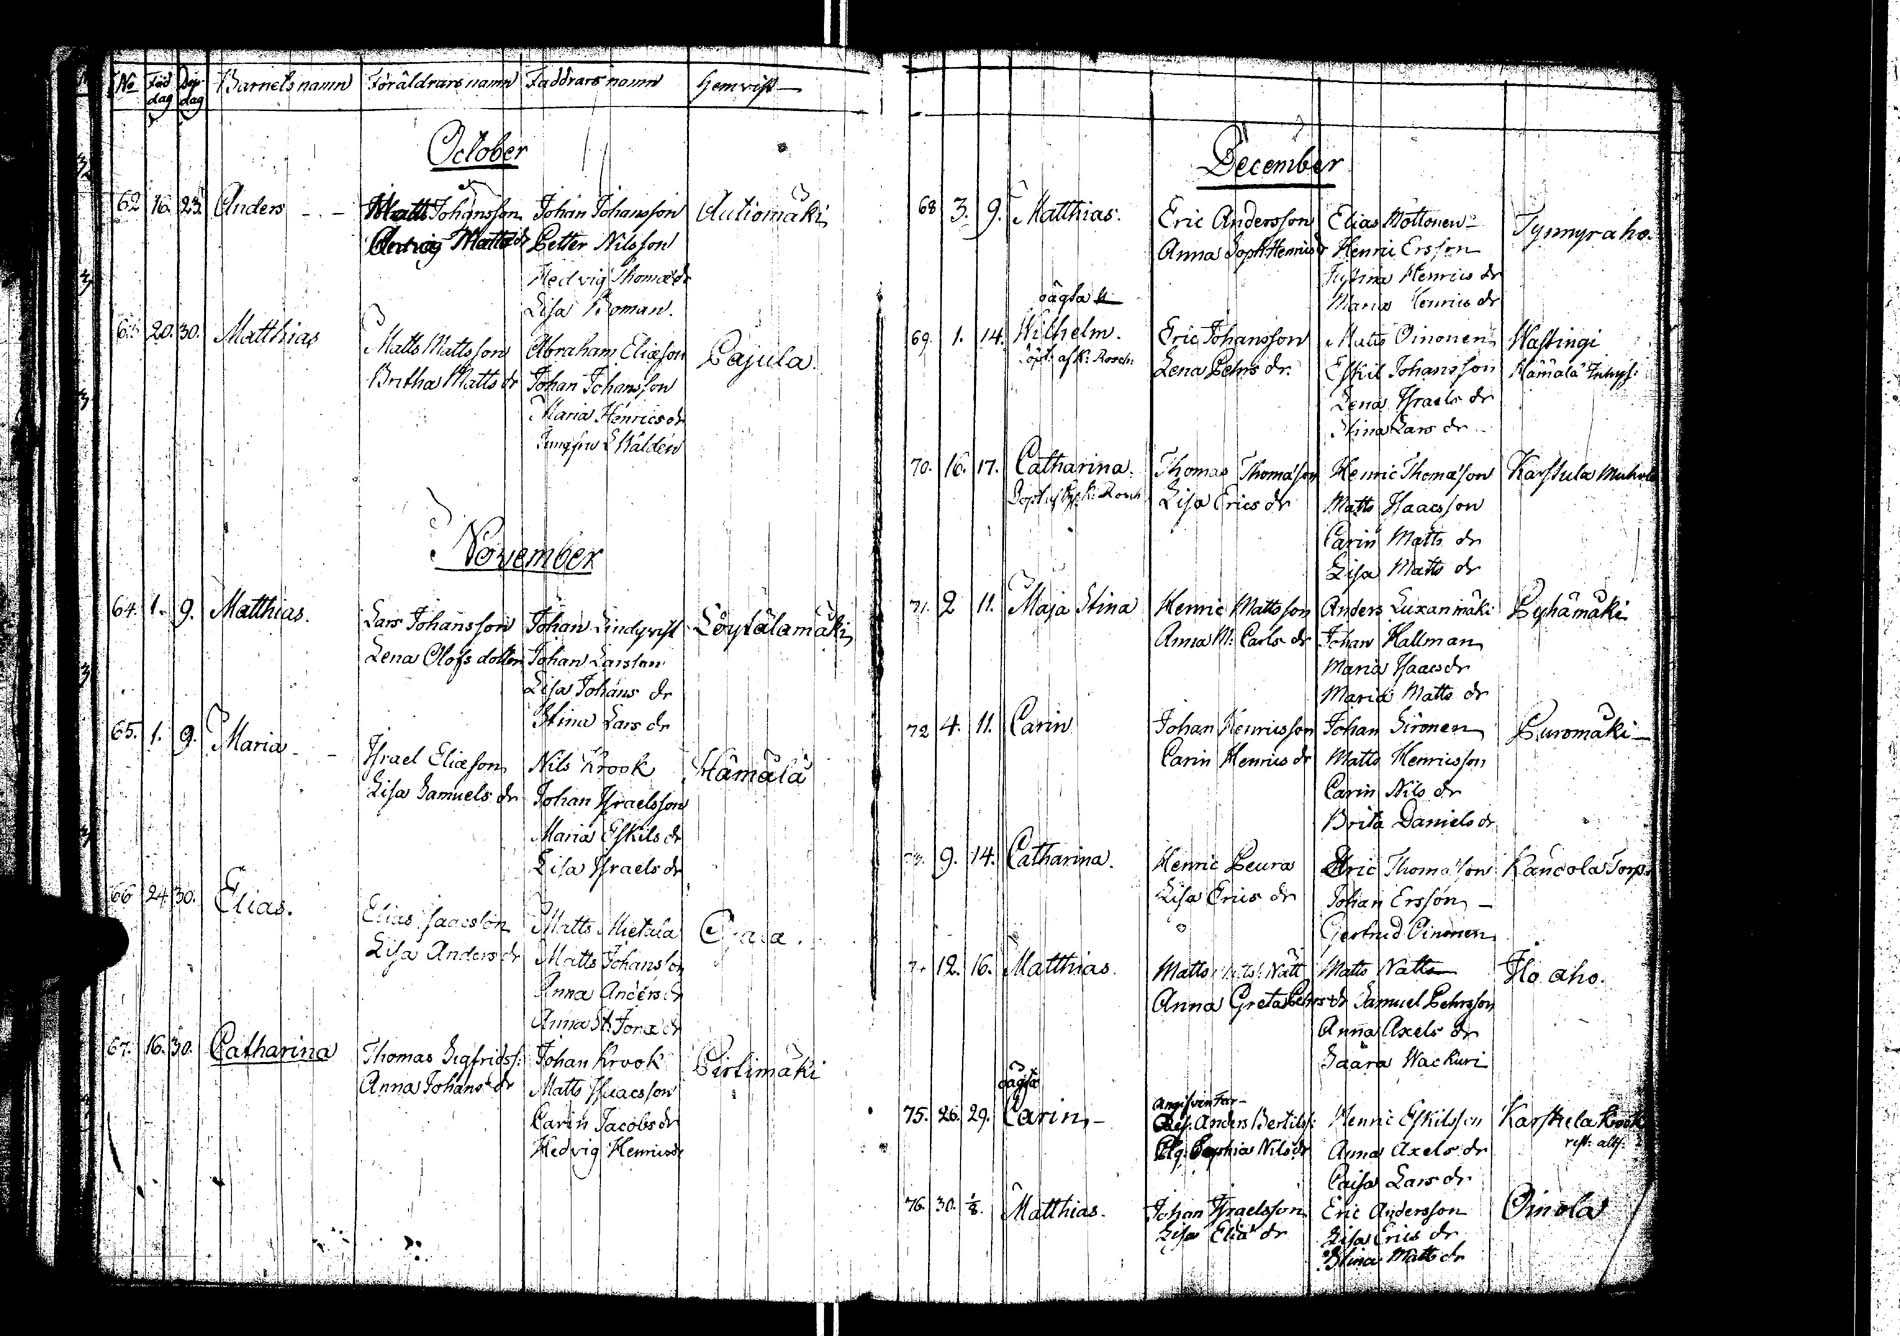 No Föd dag Döp dag Barnets namn Föräldrars namn Faddrars namn Hemvist
October
62 16 23. Anders - - Matts Johansson Johan Johansson Autiomäki
Hedvig Matts dr Petter Nilsson
Hedvig Thomæ dr
Lisa Roman.
63. 20. 30. Matthias Matts Mattsson Abraham Eliæson Pajula.
Britha Matts dr Johan Johansson
Maria Henrics dr
Jungfru Walden
November
64. 1. 9. Matthias. Lars Johansson Johan Lindqvist Löytälämäki
Lena Olofs dotter Johan Larsson
Lisa Johans dr
Stina Lars dr
65. 1. 9. Maria - - Israel Eliæson Nils Krook Hämälä
Lisa Samuels dr Johan Israelsson
Maria Eskils dr
Lisa Israels dr
66 24 30. Elias. Elias Isaacsson Matts
Lisa Anders dr Matts Johansson
Anna Anders dr
Anna St. Jonæ dr
67. 16. 30. Catharina Thomas Sigfridss: Johan Krook Pirtimäki
Anna Johans dr Matts Isaacsson
Carin Jacobs dr
Hedvig Henrics dr
December
68 3. 9. Matthias. Eric Andersson Elias Möttönen - Tynnyraho.
Anna Soph Henrics dr Henric Ersson
Henrics dr
Maria Henrics dr
oägta
69. 1. 14. Wilhelm. Eric Johansson Matts Oinonen Wastingi
Döpt af K: Rosch: Lena Pehrs dr. Eskil Johansson Hämälä Inhys:
Lena Israels dr
Stina Lars dr
70. 16. 17. Catharina. Thomas Thomæson Henric Thomæson Karstula
Döpt af K: Rosch Lisa Erics dr Matts Isaacsson
Carin Matts dr
Lisa Matts dr
71. 2 11. Maja Stina Henric Mattsson Anders Luxanmäki Pyhämäki
Anna M: Carls dr Johan Hallman
Maria Isaacs dr
Maria Matts dr
72 4. 11. Carin Johan Henricsson Johan Sironen Puromäki -
Carin Henrics dr Matts Henricsson
Carin Nils dr
Brita Daniels dr
73. 9. 14. Catharina. Henric Leura Eric Thomæson Torp.
Lisa Erics dr Johan Ersson -
Gertrud Oinonen
74 12. 16. Matthias. Matts Mats: Nätt Matts Natt Ilo aho.
Anna Greta Pehrs dr Samuel Pehrsson
Anna Axels dr
Saara Wackuri
oägta
Angifven far -
75. 26. 29. Carin - Anders Bertilss: Henric Eskilsson Karstula Krook
Sophia Nils dr Anna Axels dr
Caisa Lars dr
76. 30. 1/8. Matthias. Johan Israelsson Eric Andersson Oinola
Lisa Eliæ dr Lisa Erics dr
Stina Matts dr